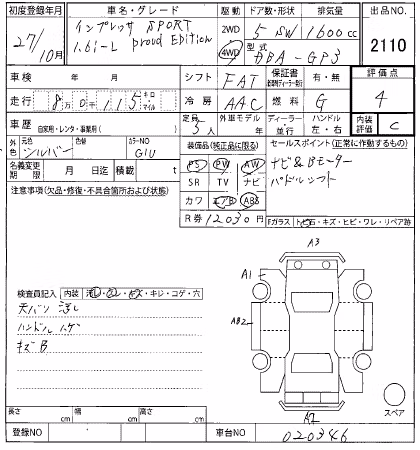 初度登録年月 車名・グレード 駆動 ドア数・形状 排気量 出品NO.
27/10月 インプレッサ SPORT 2WD 5 SW 1600cc 2110
1.6i-L proud Edition 4WD 型式 DBA-GP3
車検 年 月 シフト FAT 保証書 有・無 評価点
走行 8万0千115 キロ マイル 冷房 AAC 燃料 G 4
車歴 自家用・レンタ・事業用( ) 定員 5人 外車モデル 年 ディーラー・並行 ハンドル 左・右 内装評価 C
外色 元色 シルバー 色替 カラーNO G1U 装備品(純正品に限る) セールスポイント(正常に作動するもの)
名義変更期限 月 日迄 積載 t PS PW AW ナビ&Bモーター
SR TV ナビ パドルシフト
注意事項(欠品・修復・不具合箇所および状態) カワ エアB ABS
R券 12030円 Fガラス トビ石・キズ・ヒビ・ワレ・リペア跡
A3
A1
検査員記入 内装
天バリ
ハンドル スゲ AB2
キズ B
A2
スペア
長さ cm 幅 cm 高さ cm
登録NO 車台NO 020346